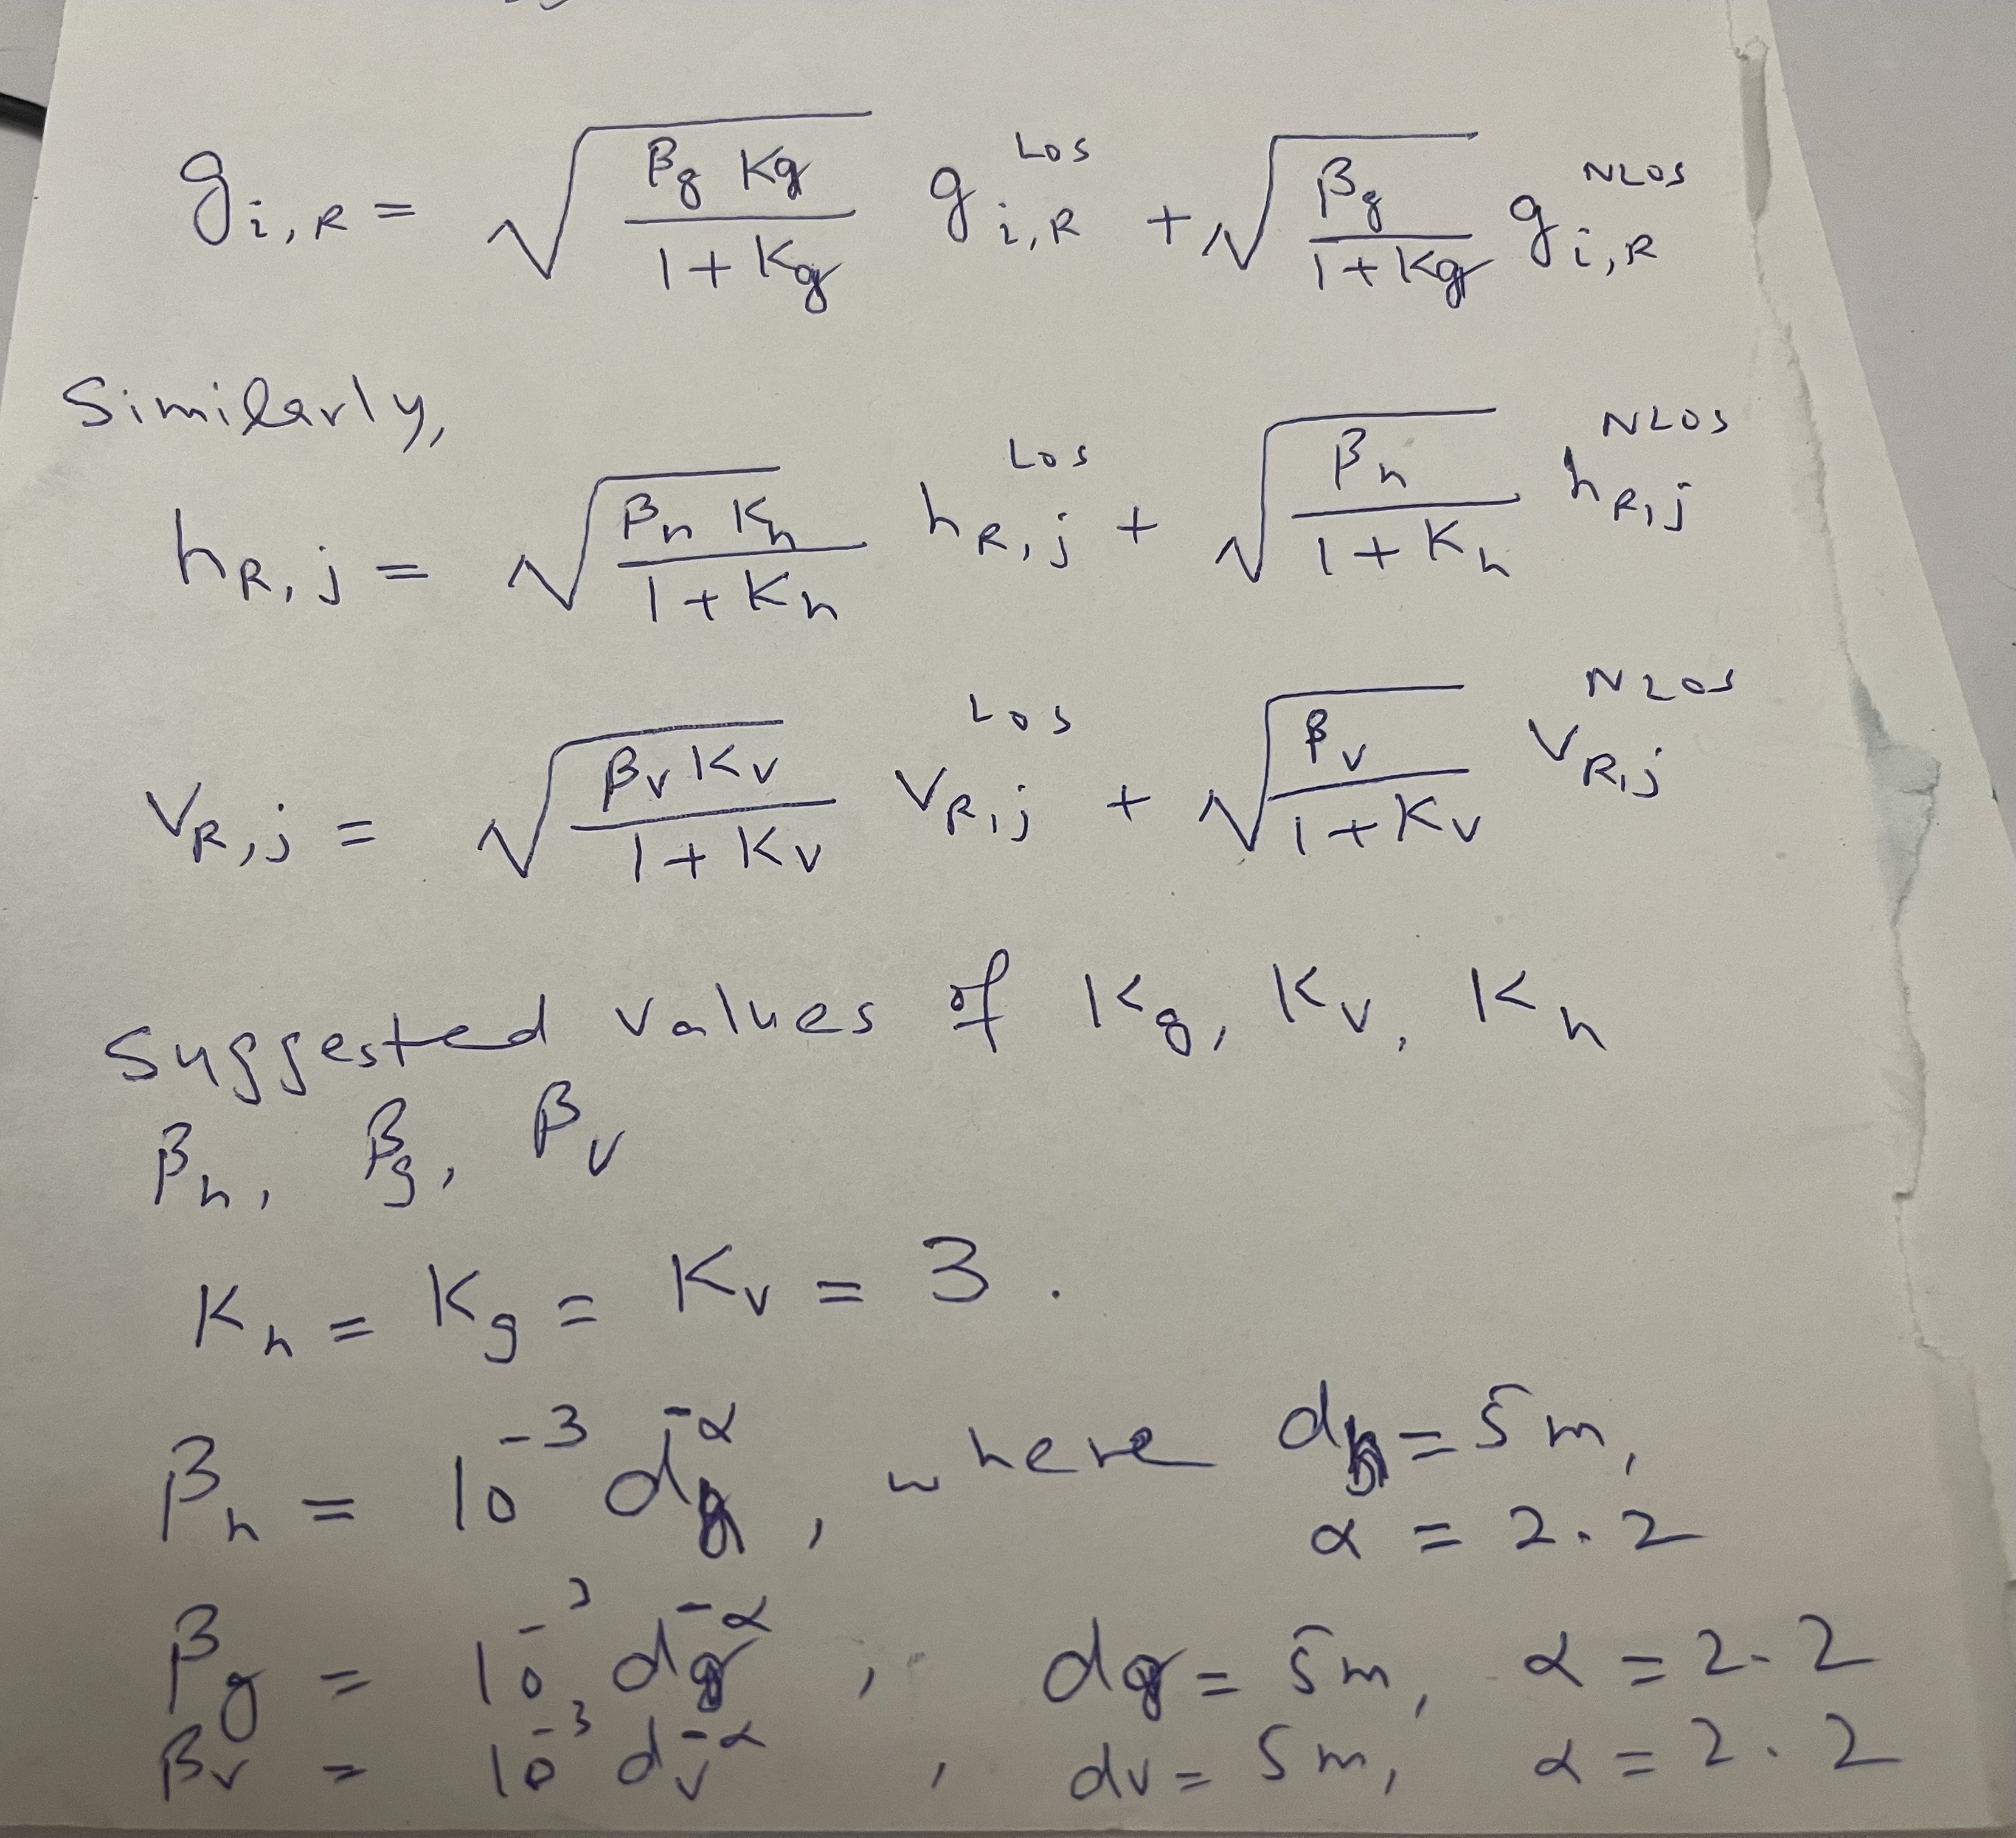 g_{i,R} = √(β_g K_g / (1 + K_g)) g_{i,R}^{LOS} + √(β_g / (1 + K_g)) g_{i,R}^{NLOS}
Similarly,
h_{R,j} = √(β_h K_h / (1 + K_h)) h_{R,j}^{LOS} + √(β_h / (1 + K_h)) h_{R,j}^{NLOS}
V_{R,j} = √(β_v K_v / (1 + K_v)) V_{R,j}^{LOS} + √(β_v / (1 + K_v)) V_{R,j}^{NLOS}
Suggested values of K_g, K_v, K_h
β_h, β_g, β_v
K_h = K_g = K_v = 3.
β_h = 10^{-3} d_h^{-α}, where d_h = 5m,
α = 2.2
β_g = 10^{-3} d_g^{-α}, d_g = 5m, α = 2.2
β_v = 10^{-3} d_v^{-α}, d_v = 5m, α = 2.2